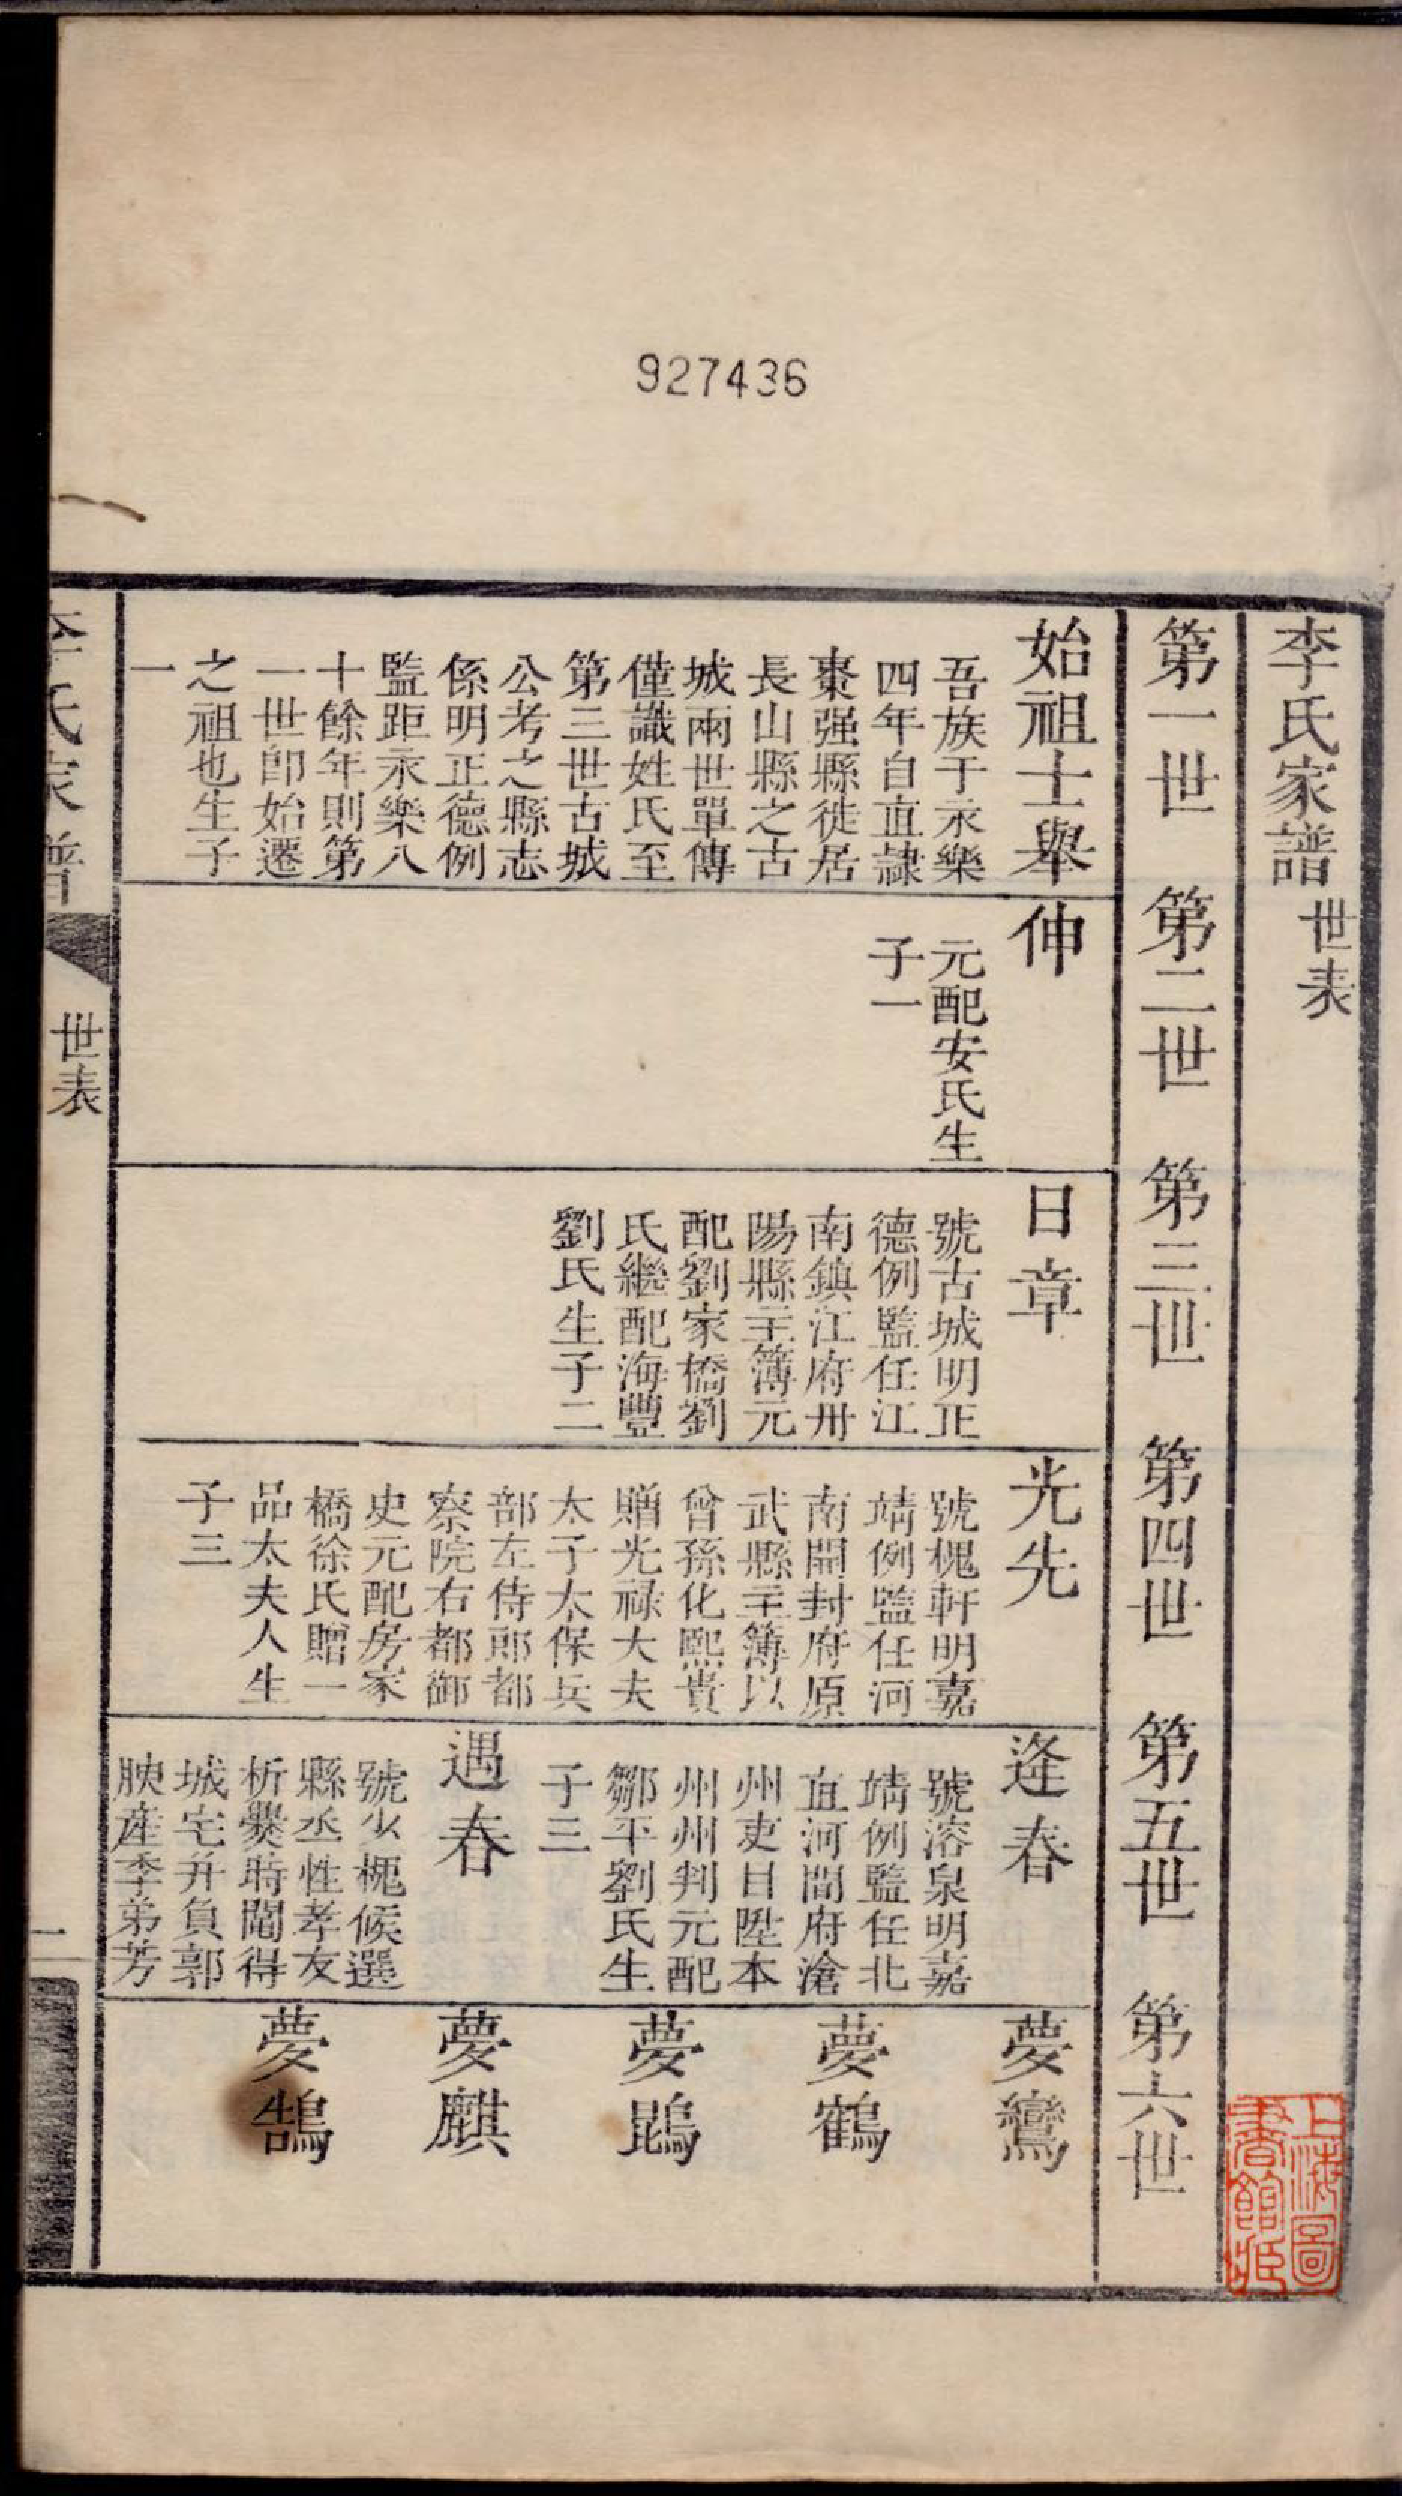 927436
李氏家譜 世表
第一世 第二世 第三世 第四世 第五世 第六世
始祖士舉
吾族于永樂
四年自直隷
棗强縣徙居
長山縣之古
城兩世單傳
僅識姓氏至
第三世古城
公考之縣志
係明正德例
監距永樂八
十餘年則第
一世卽始遷
之祖也生子
一
伸
元配安氏生
子一
日章
號古城明正
德例監任江
南鎮江府丹
陽縣主簿元
配劉家橋劉
氏繼配海豐
劉氏生子二
光先
號槐軒明嘉
靖例監任河
南開封府原
武縣主簿以
曾孫化熙貴
贈光禄大夫
太子太保兵
部左侍郎都
察院右都御
史元配房家
橋徐氏贈一
品太夫人生
子三
逢春
號溶泉明嘉
靖例監任北
直河間府滄
州吏目陞本
州州判元配
鄒平劉氏生
子三
遇春
號少槐候選
縣丞性孝友
析爨時鬮得
城宅并負郭
腴産季弟芳
夢鸞
夢鶴
夢鵾
夢麒
夢鵠
李氏家譜
世表
一
上海圖
書館藏